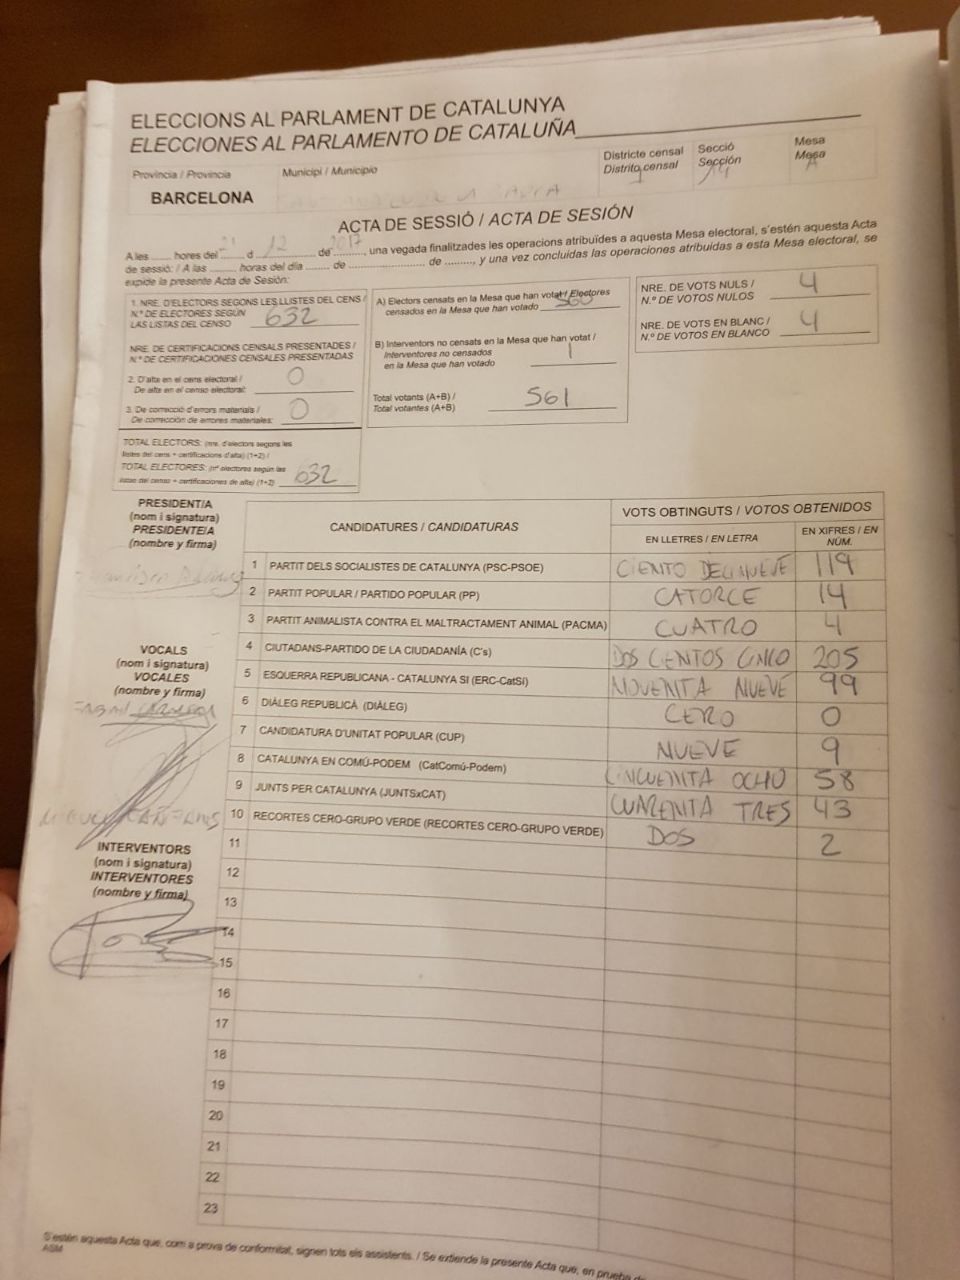 ELECCIONS AL PARLAMENT DE CATALUNYA
ELECCIONES AL PARLAMENTO DE CATALUÑA
Provincia / Provincia
BARCELONA
Municipi / Municipio
Districte censal
Distrito censal
1
Secció
Sección
14
Mesa
Mesa
A
ACTA DE SESSIÓ / ACTA DE SESIÓN
A les ........ hores del 21 d 12 de 2017, una vegada finalitzades les operacions atribuïdes a aquesta Mesa electoral, s'estén aquesta Acta
de sessió: / A las ........ horas del día ........ de ........................ de ........., y una vez concluidas las operaciones atribuidas a esta Mesa electoral, se
expide la presente Acta de Sesión:
1. NRE. D'ELECTORS SEGONS LES LLISTES DEL CENS /
N.º DE ELECTORES SEGÚN
LAS LISTAS DEL CENSO 632
NRE. DE CERTIFICACIONS CENSALS PRESENTADES /
N.º DE CERTIFICACIONES CENSALES PRESENTADAS
2. D'alta en el cens electoral /
De alta en el censo electoral: 0
3. De correcció d'errors materials /
De corrección de errores materiales: 0
TOTAL ELECTORS: (nre. d'electors segons les
llistes del cens + certificacions d'alta) (1+2) /
TOTAL ELECTORES: (nº electores según las
listas del censo + certificaciones de alta) (1+2) 632
A) Electors censats en la Mesa que han votat / Electores
censados en la Mesa que han votado 560
B) Interventors no censats en la Mesa que han votat /
Interventores no censados
en la Mesa que han votado 1
Total votants (A+B) /
Total votantes (A+B) 561
NRE. DE VOTS NULS /
N.º DE VOTOS NULOS 4
NRE. DE VOTS EN BLANC /
N.º DE VOTOS EN BLANCO 4
PRESIDENT/A
(nom i signatura)
PRESIDENTE/A
(nombre y firma)
VOCALS
(nom i signatura)
VOCALES
(nombre y firma)
INTERVENTORS
(nom i signatura)
INTERVENTORES
(nombre y firma)
CANDIDATURES / CANDIDATURAS
VOTS OBTINGUTS / VOTOS OBTENIDOS
EN LLETRES / EN LETRA
EN XIFRES / EN NÚM.
1 PARTIT DELS SOCIALISTES DE CATALUNYA (PSC-PSOE) CIENTO DECINUEVE 119
2 PARTIT POPULAR / PARTIDO POPULAR (PP) CATORCE 14
3 PARTIT ANIMALISTA CONTRA EL MALTRACTAMENT ANIMAL (PACMA) CUATRO 4
4 CIUTADANS-PARTIDO DE LA CIUDADANÍA (C's) DOS CIENTOS CINCO 205
5 ESQUERRA REPUBLICANA - CATALUNYA SÍ (ERC-CatSí) NOVENTA NUEVE 99
6 DIÀLEG REPUBLICÀ (DIÀLEG) CERO 0
7 CANDIDATURA D'UNITAT POPULAR (CUP) NUEVE 9
8 CATALUNYA EN COMÚ-PODEM (CatComú-Podem) CINCUENTA OCHO 58
9 JUNTS PER CATALUNYA (JUNTSxCAT) CUARENTA TRES 43
10 RECORTES CERO-GRUPO VERDE (RECORTES CERO-GRUPO VERDE) DOS 2
11
12
13
14
15
16
17
18
19
20
21
22
23
S'estén aquesta Acta que, com a prova de conformitat, signen tots els assistents. / Se extiende la presente Acta que, en prueba de
ASM